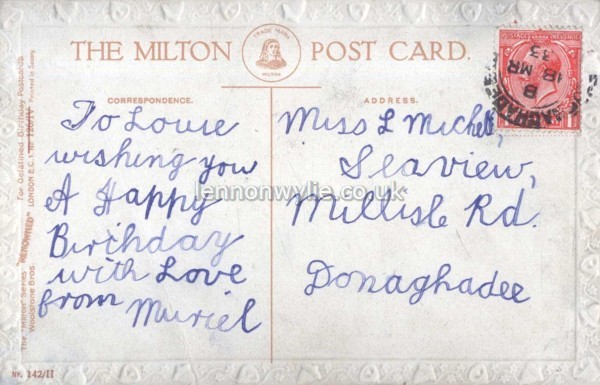 TRADE MARK
MILTON
THE MILTON POST CARD.
CORRESPONDENCE.
To Louie
wishing you
A Happy
Birthday
with Love
from Muriel
ADDRESS.
Miss L Michell,
Seaview,
Millisle Rd.
Donaghadee
B
18 MR
33
lennonwylie.co.uk
The "Milton" Series "RENOWNED"
Woolstone Bros. LONDON E.C.1.
For Gelatined Birthday Postcards
Printed in Saxony
No. 142/II